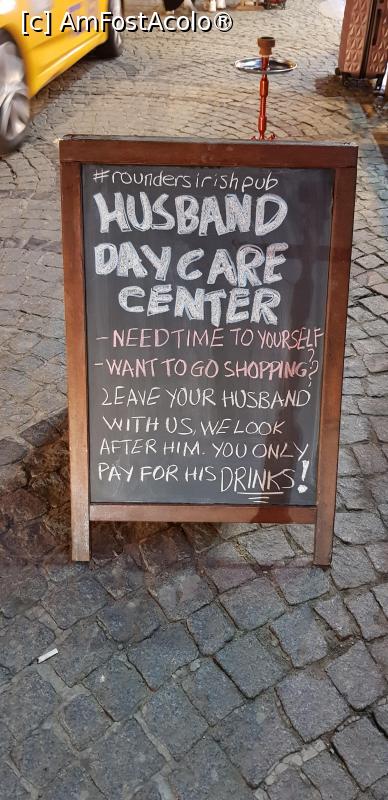 [c] AmFostAcolo®
#roundersirishpub
HUSBAND
DAYCARE
CENTER
-NEED TIME TO YOURSELF?
-WANT TO GO SHOPPING?
LEAVE YOUR HUSBAND
WITH US, WE LOOK
AFTER HIM. YOU ONLY
PAY FOR HIS DRINKS!